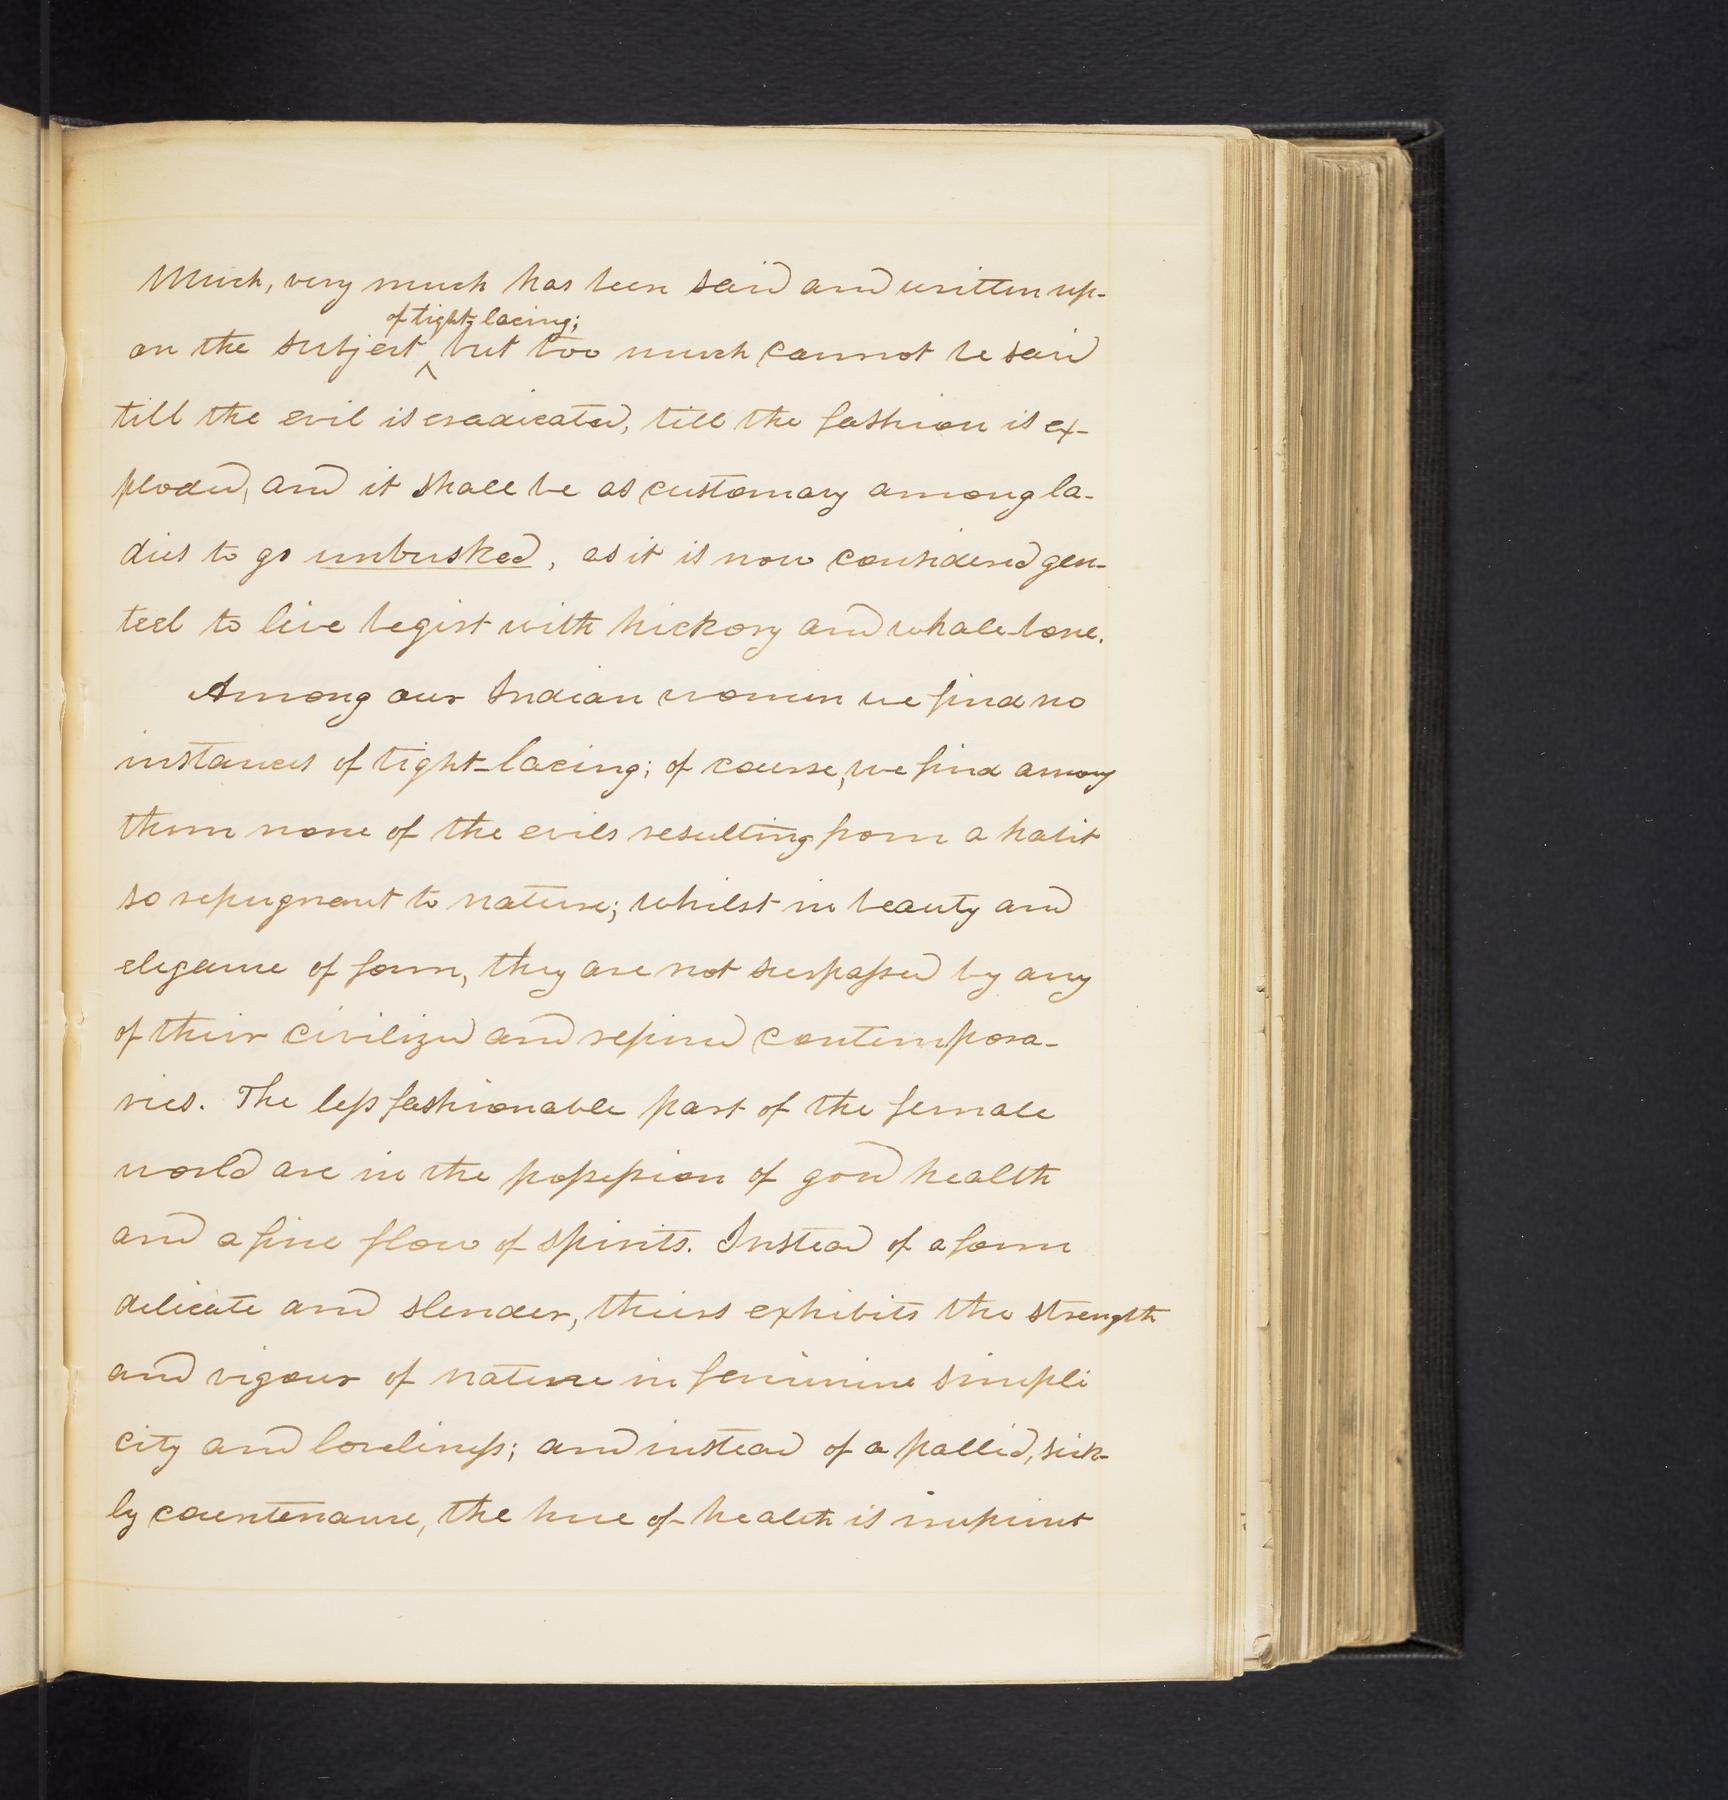 Much, very much has been said and written up-
of tight-lacing;
on the subject ‸ but too much cannot be said
till the evil is eradicated, till the fashion is ex-
ploded, and it shall be as customary among la-
dies to go unbusked, as it is now considered gen-
teel to live begirt with hickory and whale-bone.
Among our Indian women we find no
instances of tight-lacing; of course, we find among
them none of the evils resulting from a habit
so repugnant to nature; whilst in beauty and
elegance of form, they are not surpassed by any
of their civilized and refined contempora-
ries. The less fashionable part of the female
world are in the possession of good health
and a fine flow of spirits. Instead of a form
delicate and slender, theirs exhibits the strength
and vigour of nature in feminine simpli
city and loveliness; and instead of a pallid, sick-
ly countenance, the hue of health is imprint